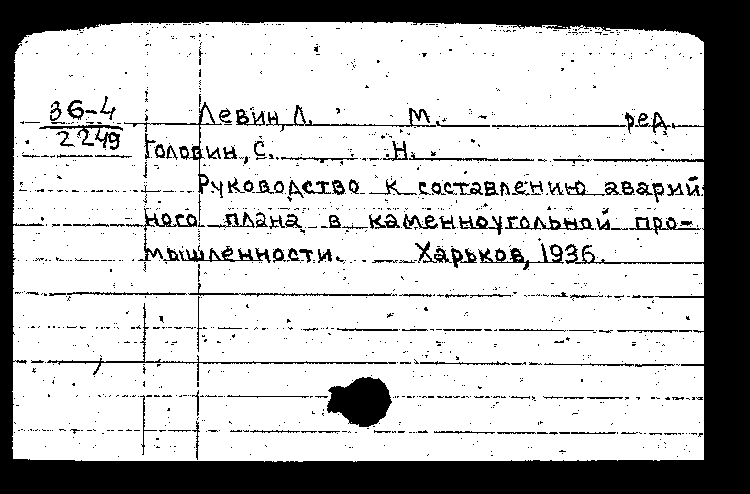 36-4
2249
Левин, Л. М. ред.
Головин, С. Н.
Руководство к составлению аварий
ного плана в каменноугольной про-
мышленности. Харьков, 1936.